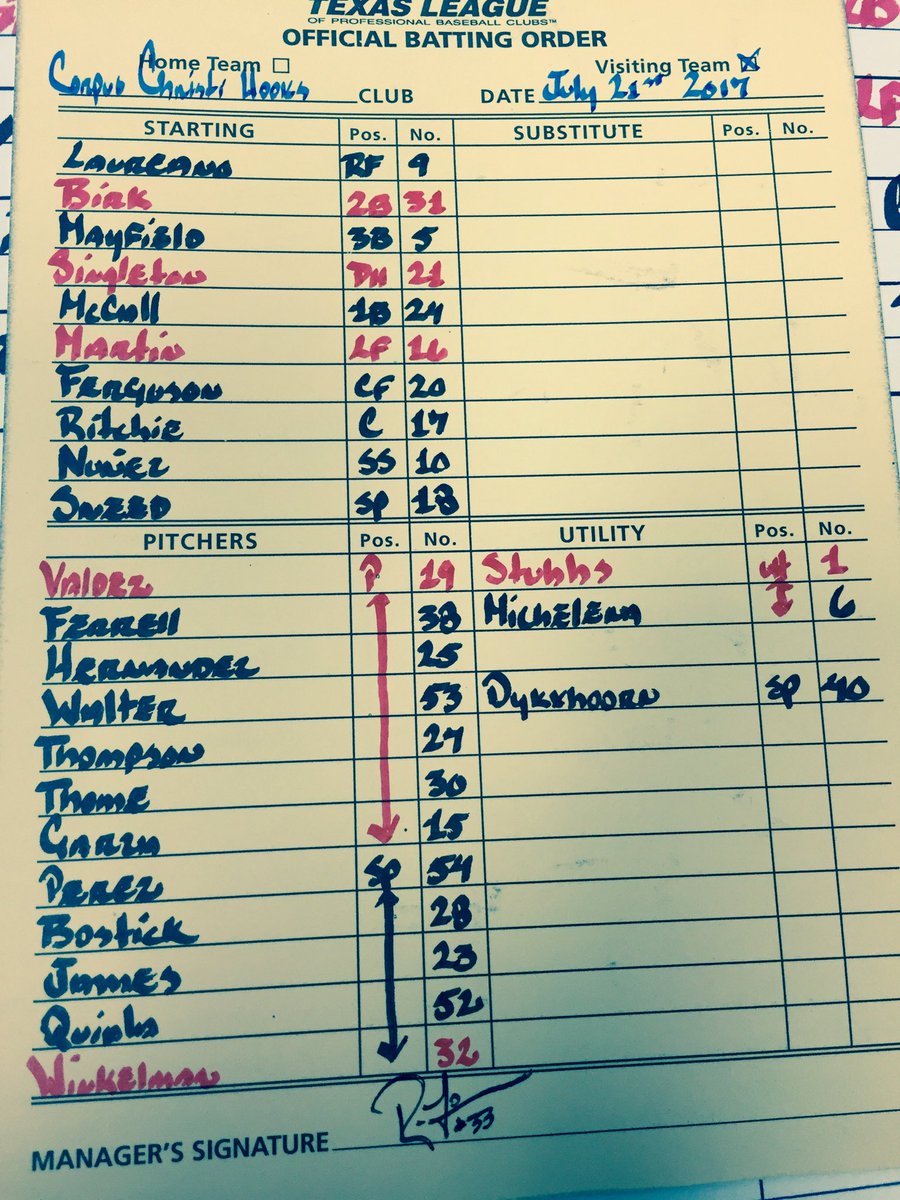 TEXAS LEAGUE
OF PROFESSIONAL BASEBALL CLUBS™
OFFICIAL BATTING ORDER
Home Team ☐ Visiting Team ☒
Corpus Christi Hooks CLUB DATE July 21st 2017
STARTING Pos. No. SUBSTITUTE Pos. No.
Laureano RF 9
Birk 2B 31
Mayfield 3B 5
Singleton DH 21
McCall 1B 24
Martin LF 16
Ferguson CF 20
Ritchie C 17
Nunez SS 10
Sneed SP 18
PITCHERS Pos. No. UTILITY Pos. No.
Valdez P 19 Stubbs 1
Ferrell 38 Michelena 6
Hernandez 25
Walter 53 Dykxhoorn SP 40
Thompson 27
Thome 30
Garza 15
Perez SP 54
Bostick 28
James 23
Quiala 52
Winkelman 32
MANAGER'S SIGNATURE